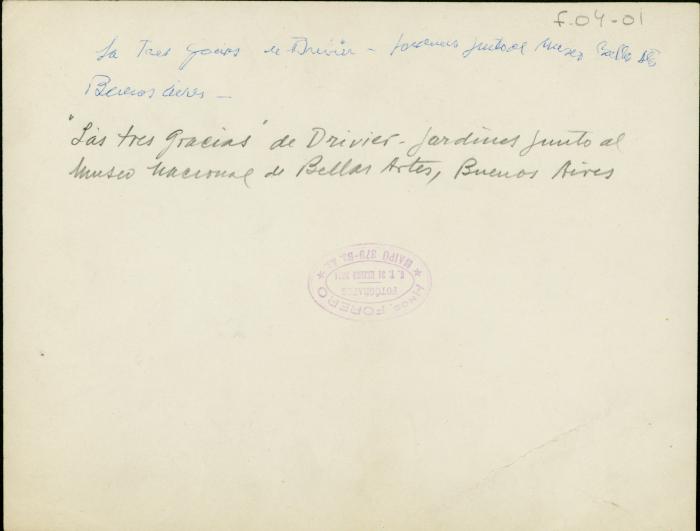 f-04-01
La Tres Gracias de Drivier - Jardines junto al Museo Bellas
Buenos Aires -
"Las tres gracias" de Drivier - Jardines junto al
Museo Nacional de Bellas Artes, Buenos Aires
HNOS. FORERO
FOTOGRAFOS
U. T. 31
MAIPU 379 - BS. AS.